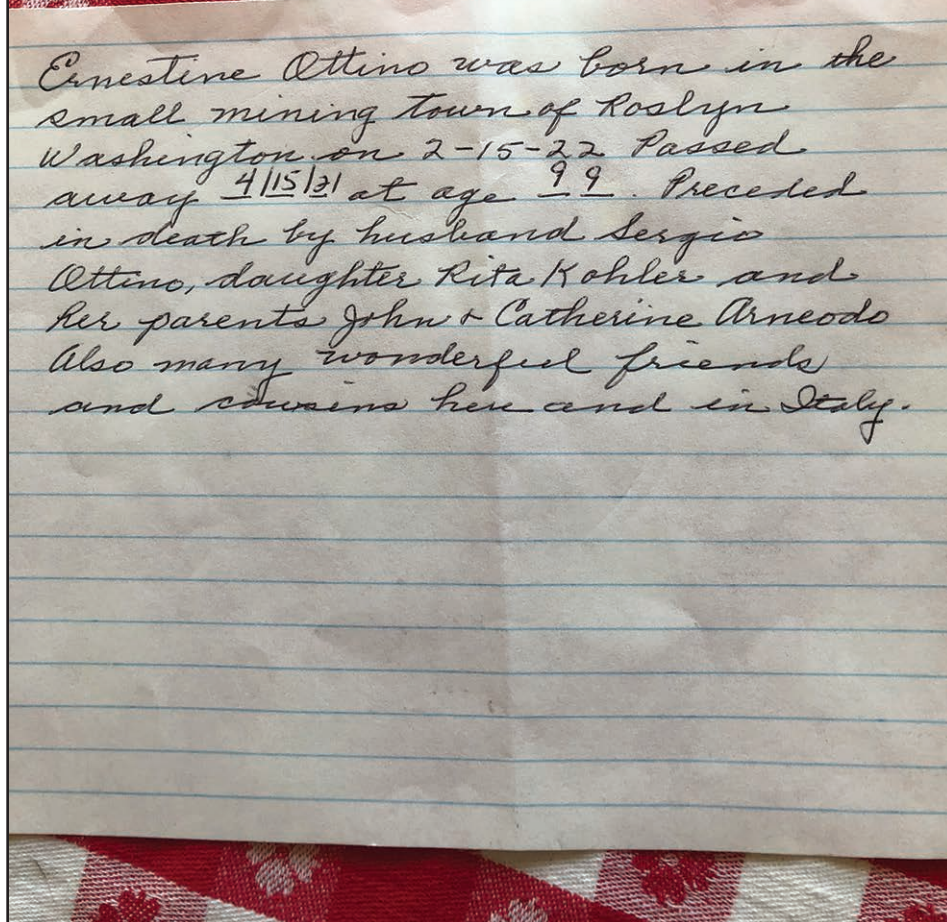 Ernestine Ottino was born in the
small mining town of Roslyn
Washington on 2-15-22 Passed
away 4/15/21 at age 99. Preceded
in death by husband Sergio
Ottino, daughter Rita Kohler and
her parents John & Catherine Arneodo
Also many wonderful friends
and cousins here and in Italy.